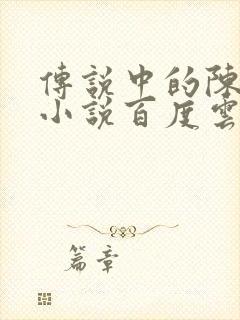 傳說中的陳
小說百度雲
篇章